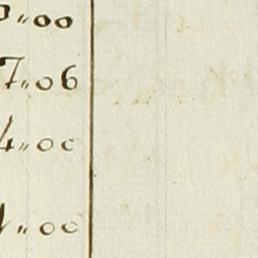 „00
7„06
4„00
„00